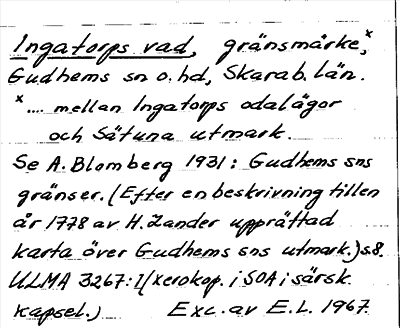 Ingatorps vad, gränsmärke,ˣ
Gudhems sn o. hd, Skarab. län.
ˣ.... mellan Ingatorps odalägor
och Sätuna utmark.
Se A. Blomberg 1931: Gudhems sns
gränser. (Efter en beskrivning till en
år 1778 av H. Zander upprättad
karta över Gudhems sns utmark.) s.8.
ULMA 3267:1 (xerokop. i SOA i särsk.
kapsel.) Exc. av E.L. 1967